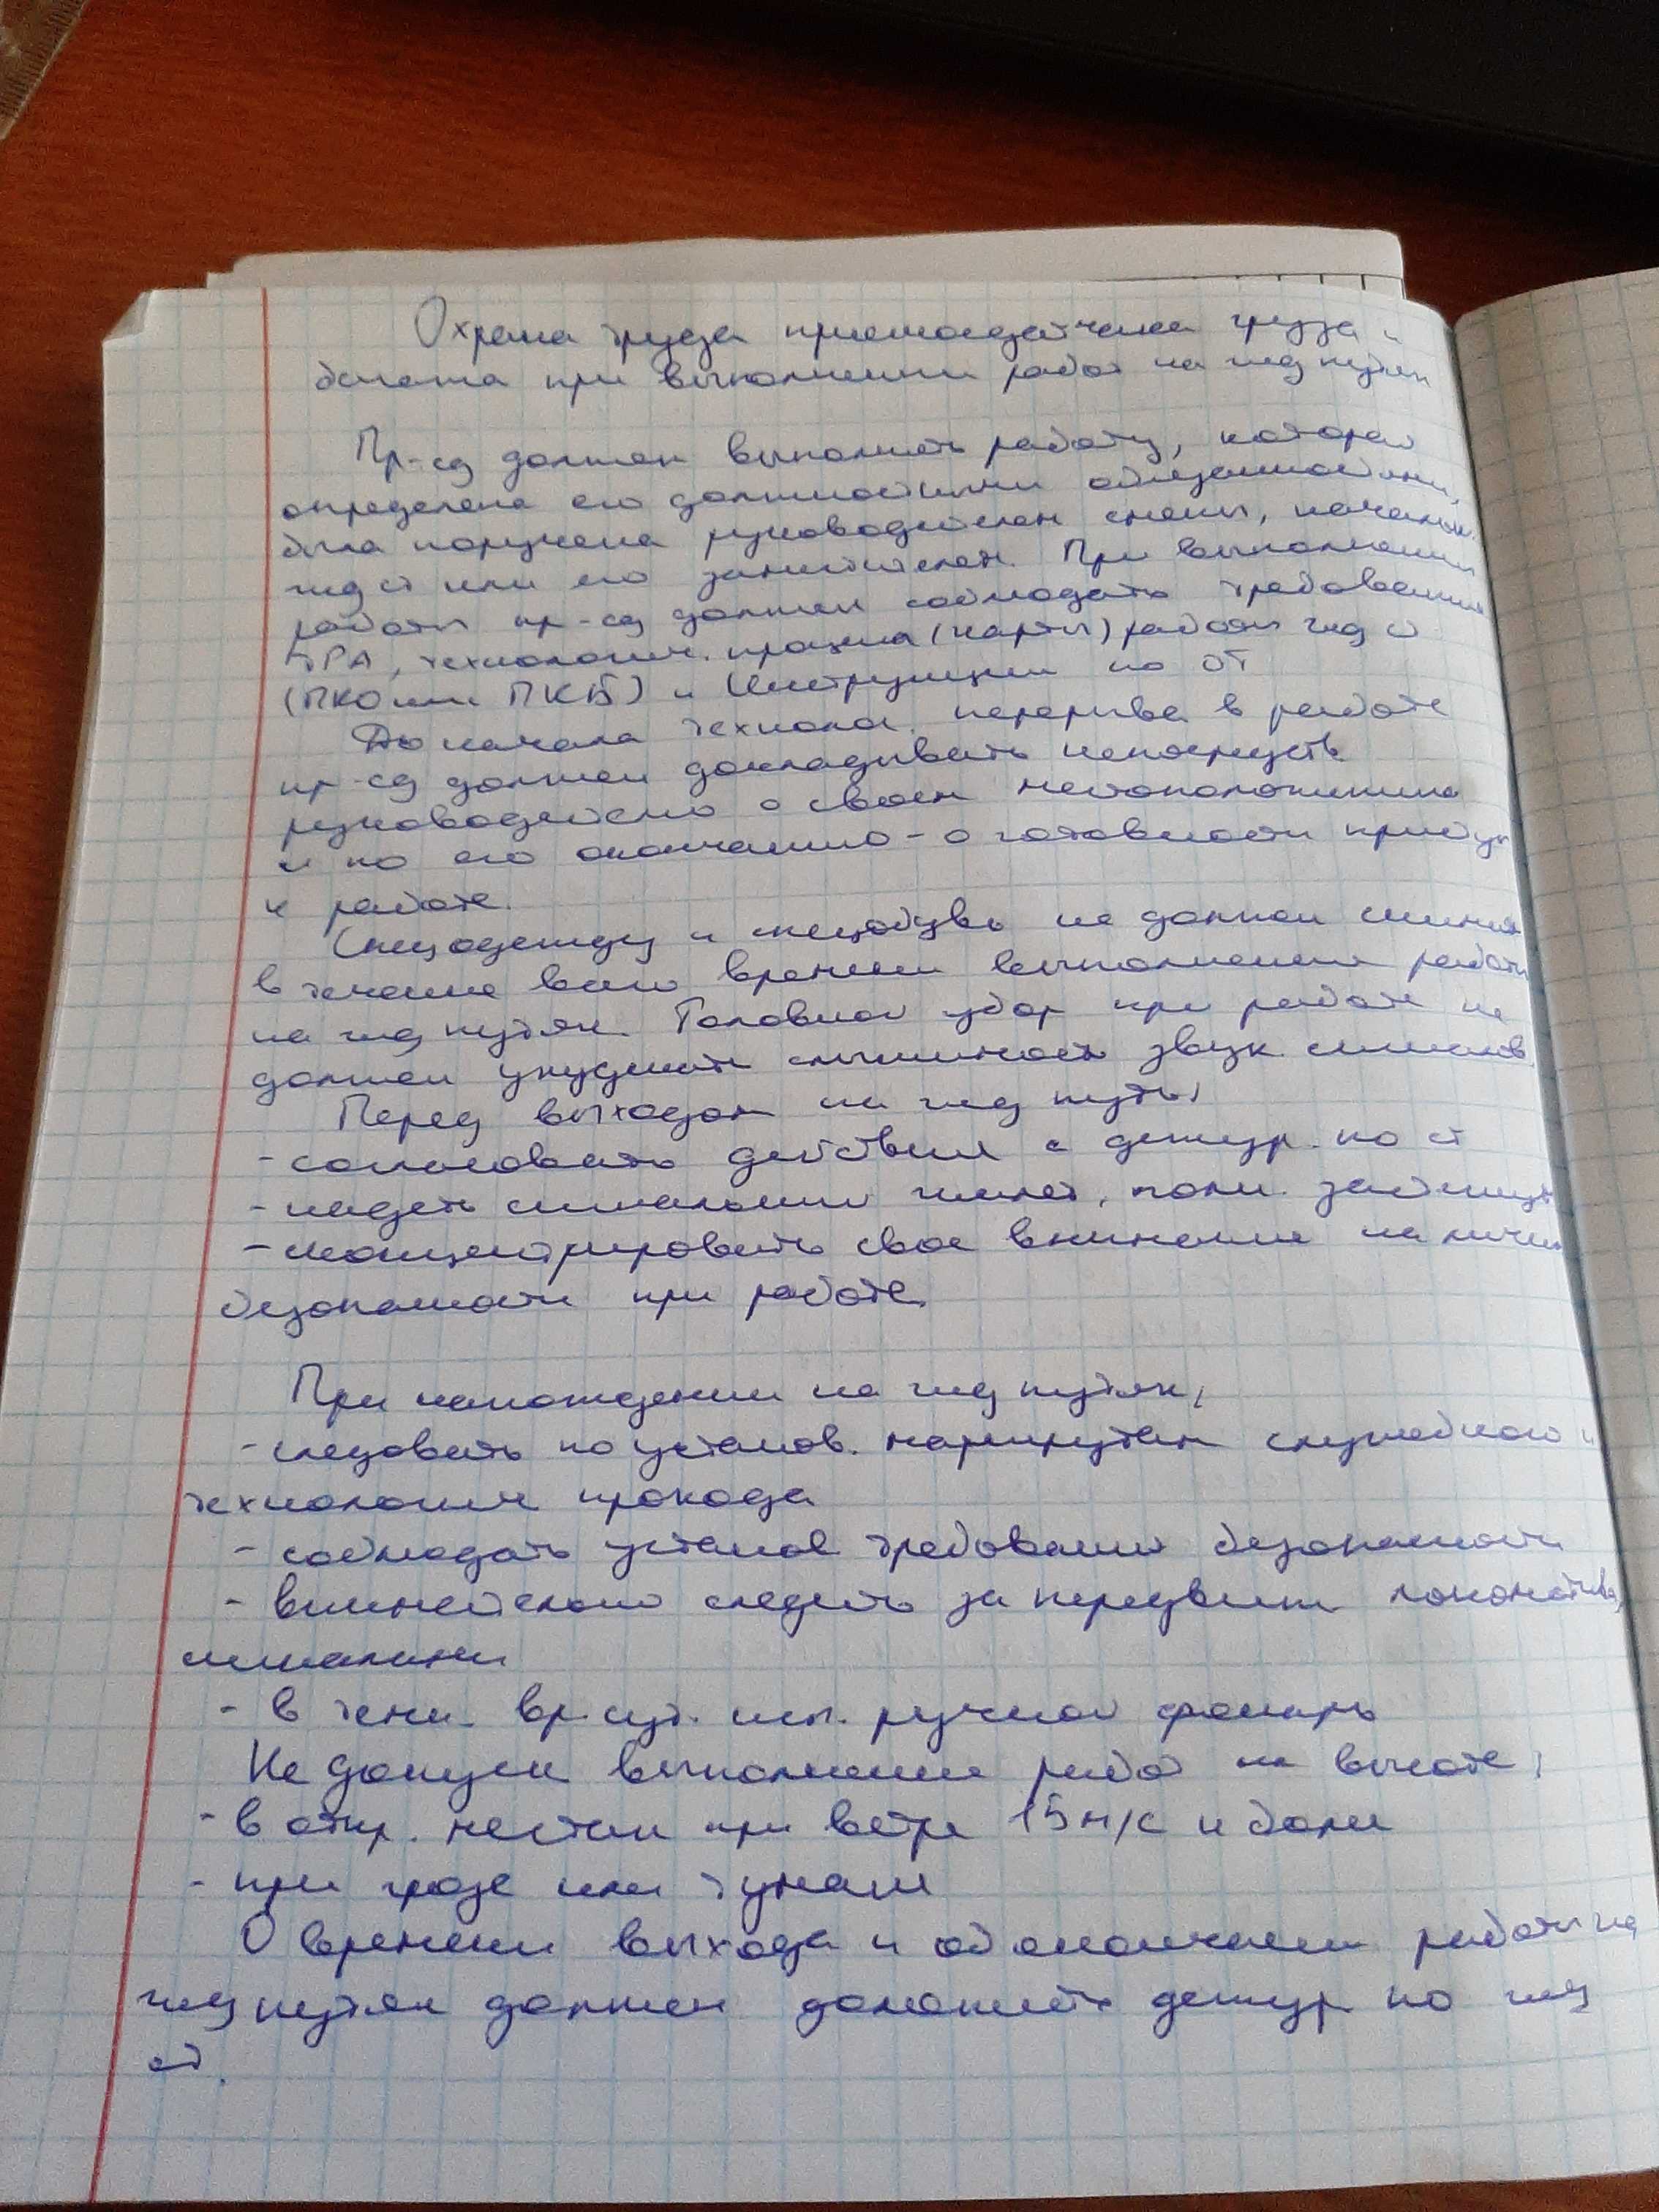 Охрана труда приемосдатчика груза и
багажа при выполнении работ на жд путях
Пр-сд должен выполнять работу, которая
определена его должностными обязанностями,
была поручена руководителем смены, начальн.
жд ст или его заместителем. При выполнении
работы пр-сд должен соблюдать требования
ТРА, технологич. процесса (карты) работы жд ст
(ПКО или ПКБ) и Инструкции по ОТ
До начала технолог. перерыва в работе
пр-сд должен докладывать непосредств.
руководителю о своем местоположении
и по его окончанию - о готовности приступ
к работе.
Спецодежду и спецобувь не должен снимать
в течение всего времени выполнения работы
на жд путях. Головной убор при работе не
должен ухудшать слышимость звук. сигналов
Перед выходом на жд путь:
- согласовать действия с дежур. по ст
- надеть сигнальный жилет, полн. застегнут
- сконцентрировать свое внимание на личн
безопасности при работе.
При нахождении на жд путях:
- следовать по установ. маршрутам служебного и
технологич прохода
- соблюдать установ требования безопасности
- внимательно следить за передвиж локомотива,
сигналами
- в темн. вр. сут. исп. ручной фонарь
Не допуск выполнение работ на высоте:
- в откр. местах при ветре 15 м/с и более
- при грозе или тумане
О времени выхода и об окончании работы на
жд путях должен доложить дежур по жд
ст.